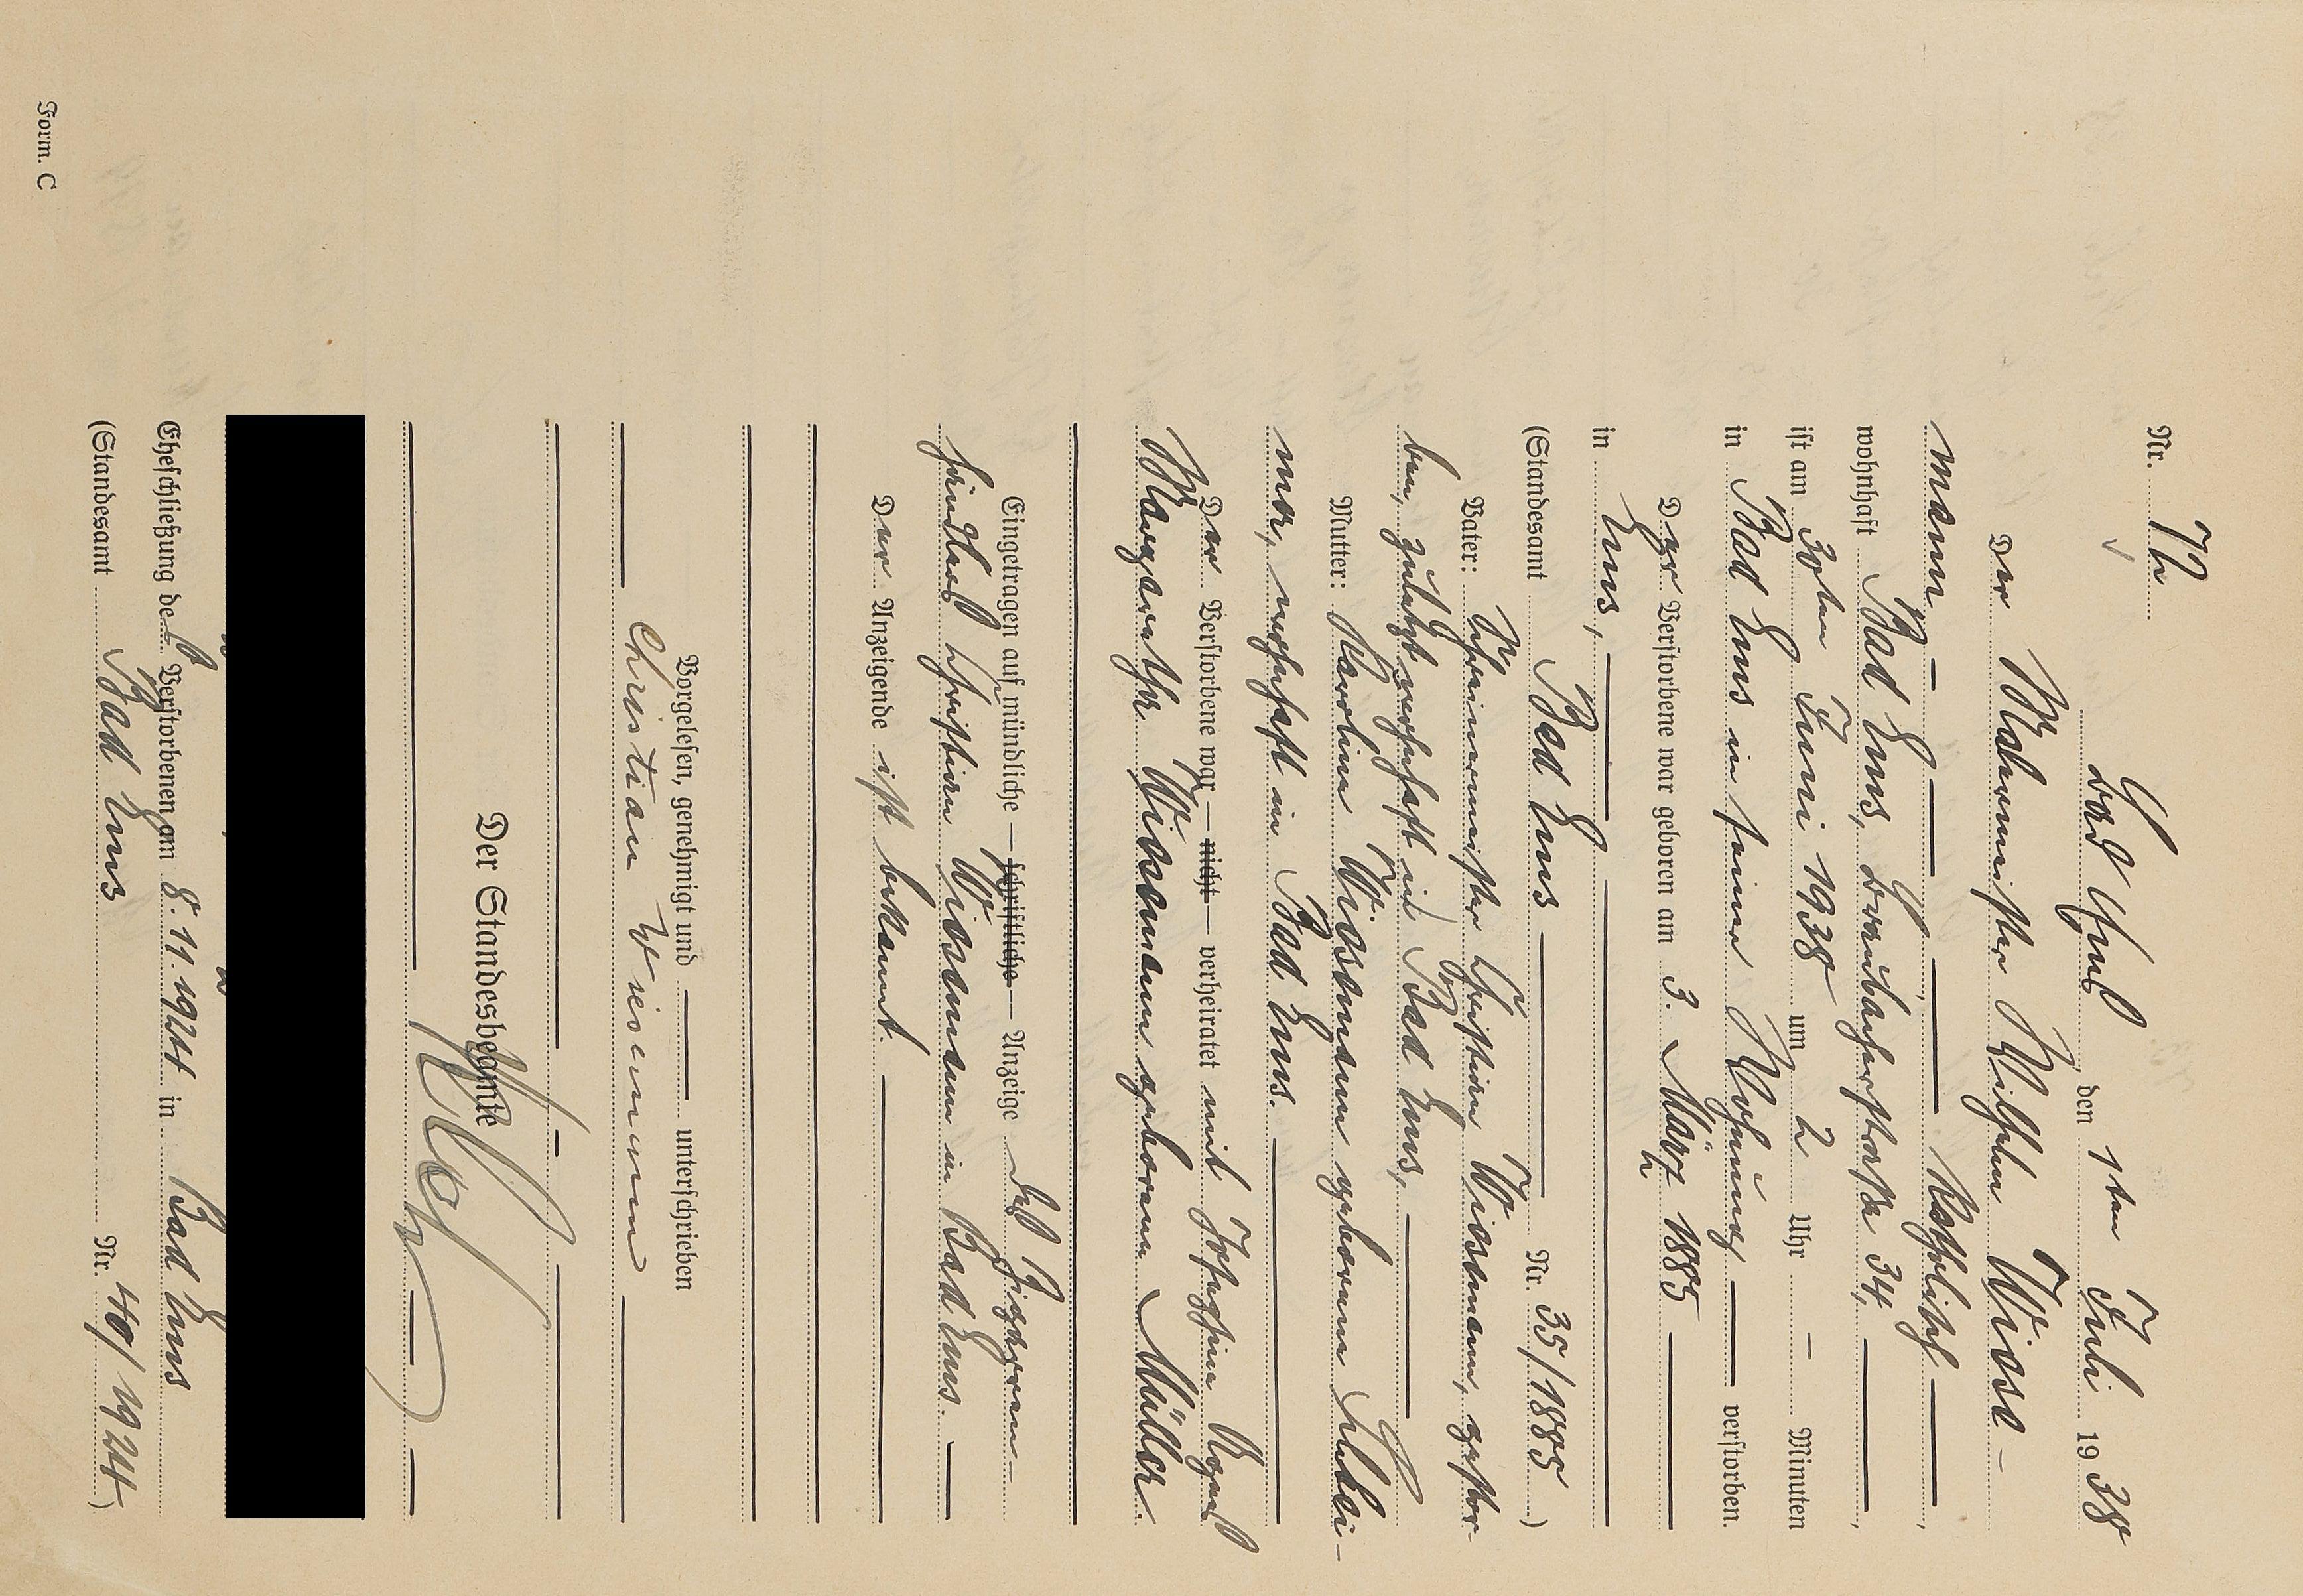 Nr. 72
Bad Ems, den 1ten Juli 1938
Der Malermeister Wilhelm Wise-
mann katholisch
wohnhaft Bad Ems, Braubacherstraße 34,
ist am 30ten Juni 1938 um 2 Uhr – Minuten
in Bad Ems in seiner Wohnung verstorben.
Der Verstorbene war geboren am 3. März 1885
in Ems,
(Standesamt Bad Ems Nr. 35/1885)
Vater: Schreinermeister Christian Wisemann, gestor-
ben, zuletzt wohnhaft in Bad Ems,
Mutter: Karoline Wisemann geborene
wohnhaft in Bad Ems.
Der Verstorbene war — nicht — verheiratet mit Josephine Agnes
Margarethe Wisemann geborene Müller.
Eingetragen auf mündliche — schriftliche — Anzeige des Zigarren-
händlers Christian Wisemann in Bad Ems.
Der Anzeigende ist bekannt.
Vorgelesen, genehmigt und unterschrieben
Christian Wisemann
Der Standesbeamte
Eheschließung des Verstorbenen am 8.11.1924 in Bad Ems
(Standesamt Bad Ems Nr. 40/1924)
Form. C